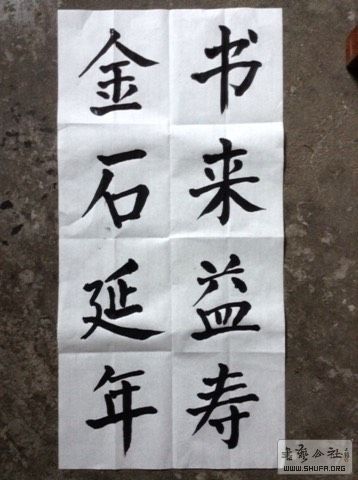 书来益寿
金石延年
WWW.SHUFA.ORG